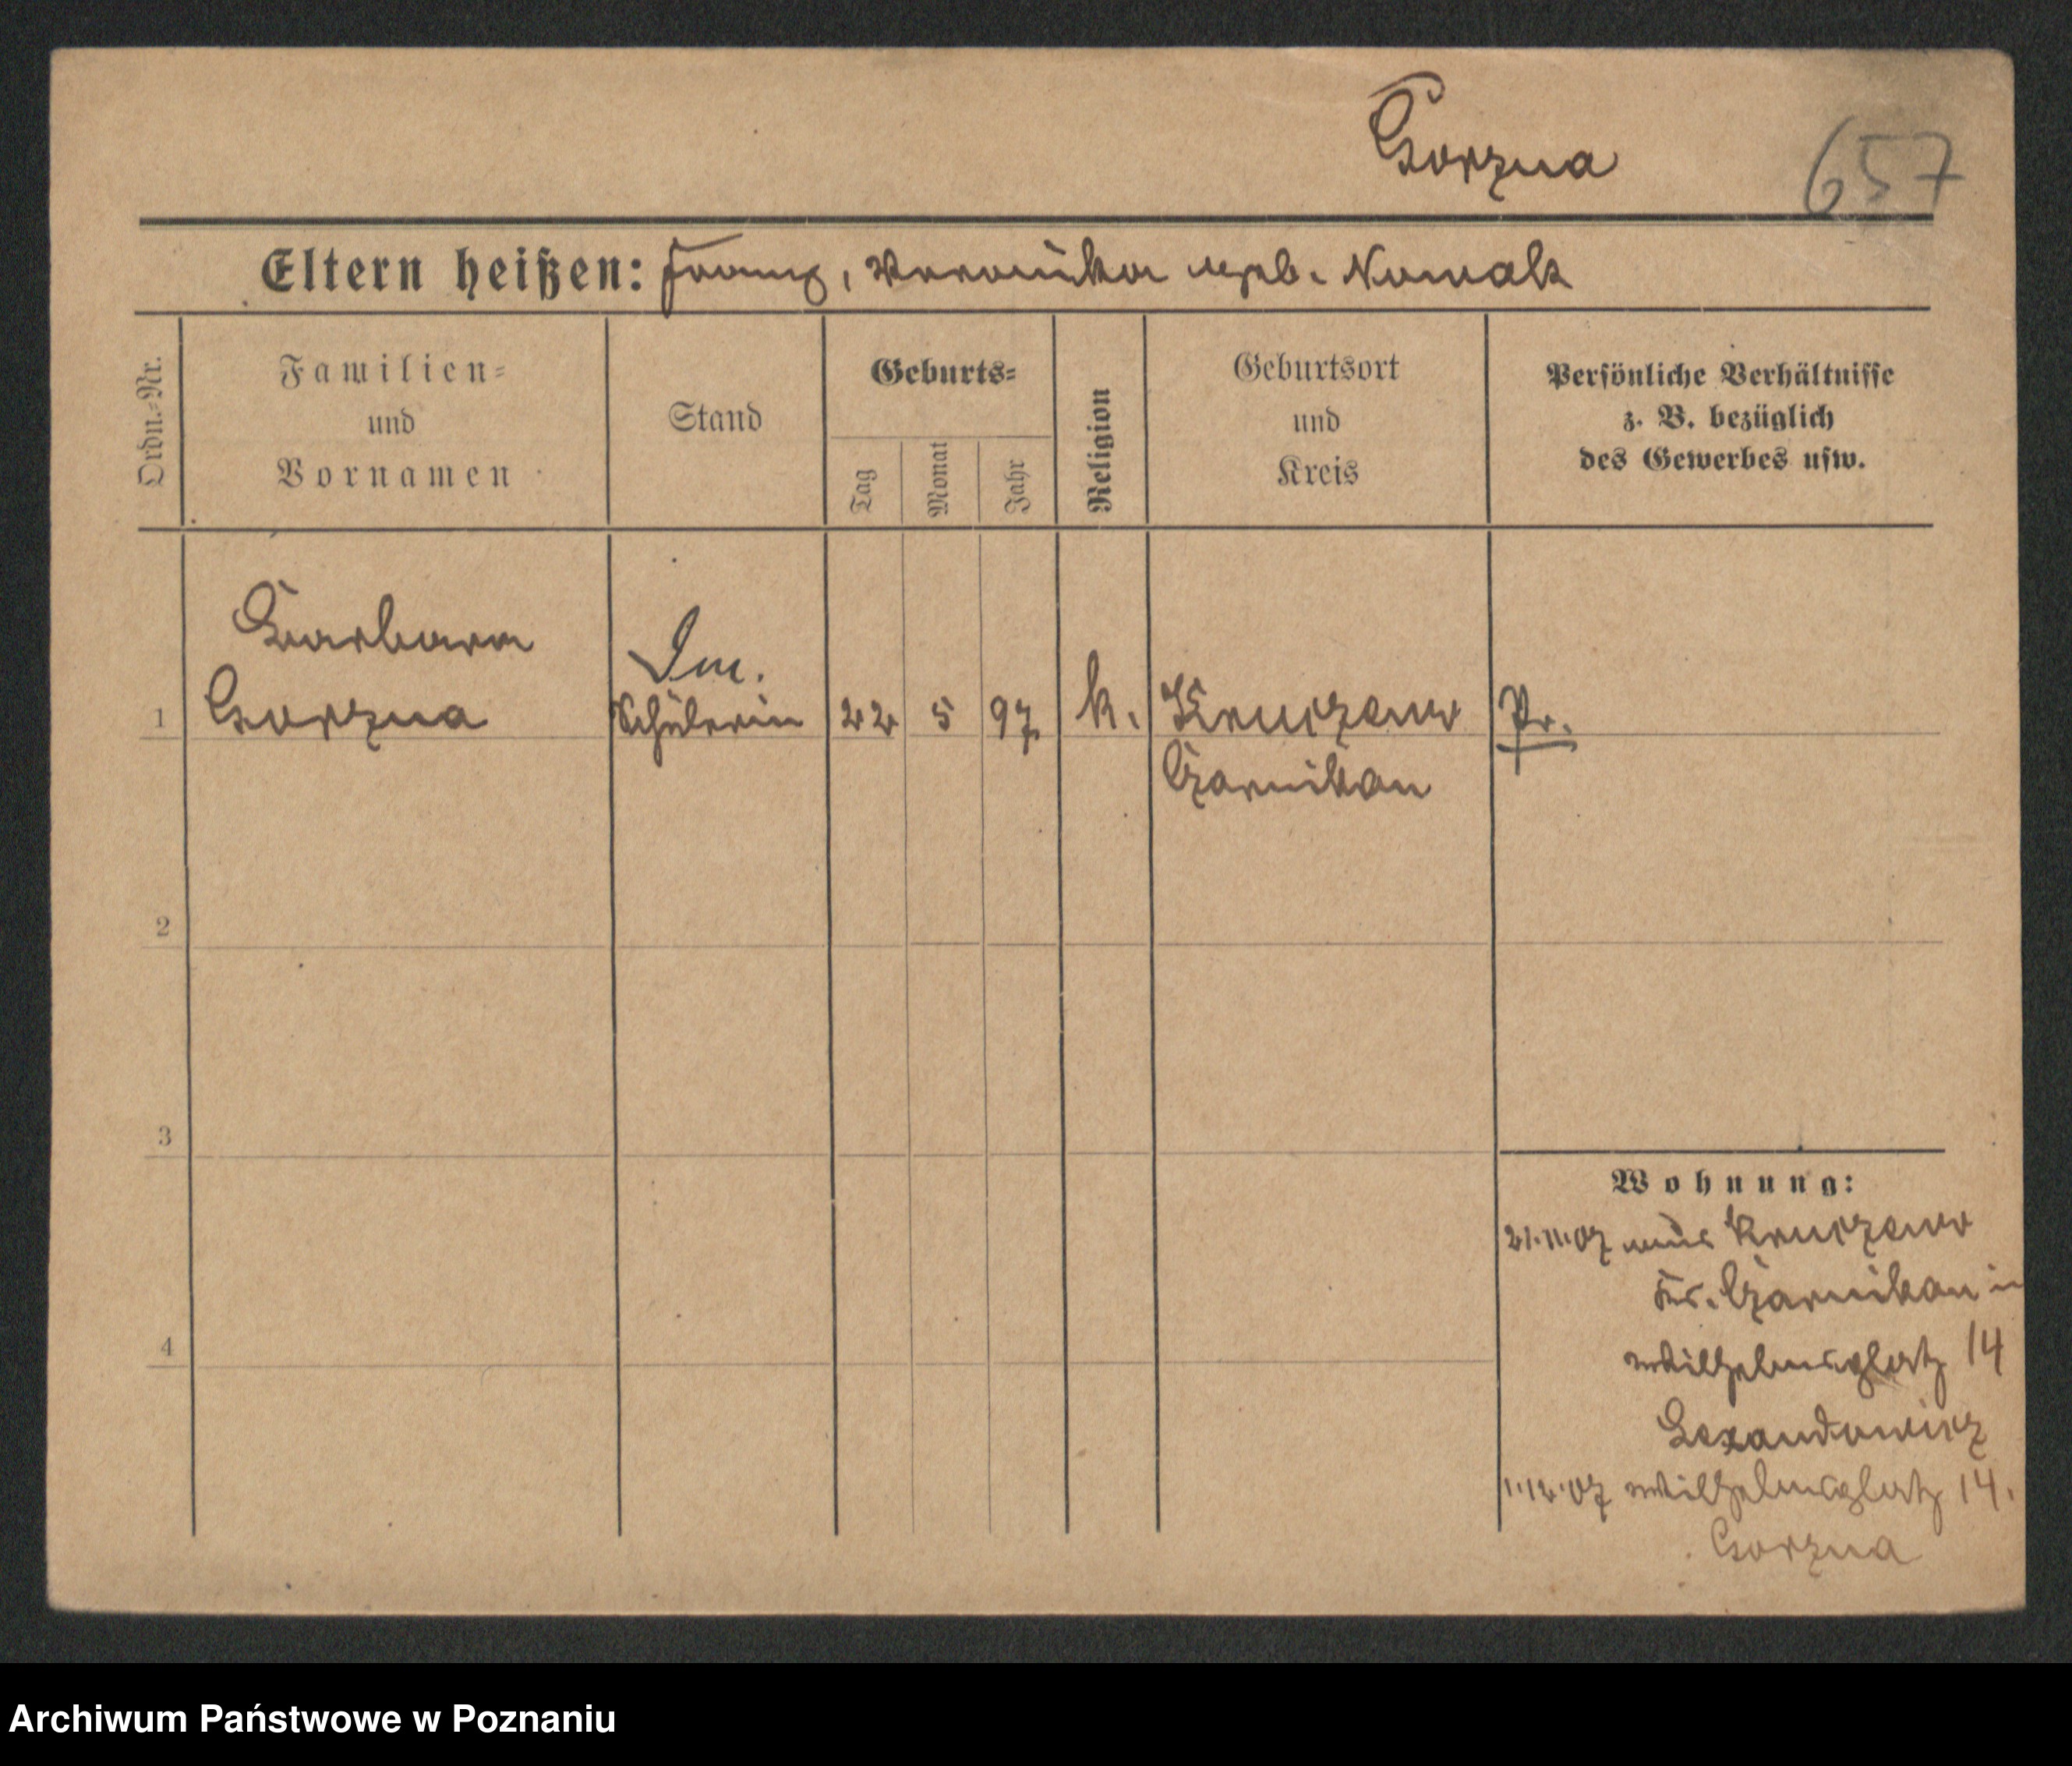 Gorzna
657
Eltern heißen: Franz, Veronika geb. Nowak
Ordn.-Nr.
Familien-
und
Vornamen
Stand
Geburts-
Tag
Monat
Jahr
Religion
Geburtsort
und
Kreis
Persönliche Verhältnisse
z. B. bezüglich
des Gewerbes usw.
Barbara
1 Gorzna Schülerin 22 5 97 k. Kruszewo Pr.
Czarnikau
2
3
4
Wohnung:
21.11.07 aus Kruszewo
Kr. Czarnikau in
Wilhelmsplatz 14
1.12.07 Wilhelmsplatz 14.
Gorzna
Archiwum Państwowe w Poznaniu